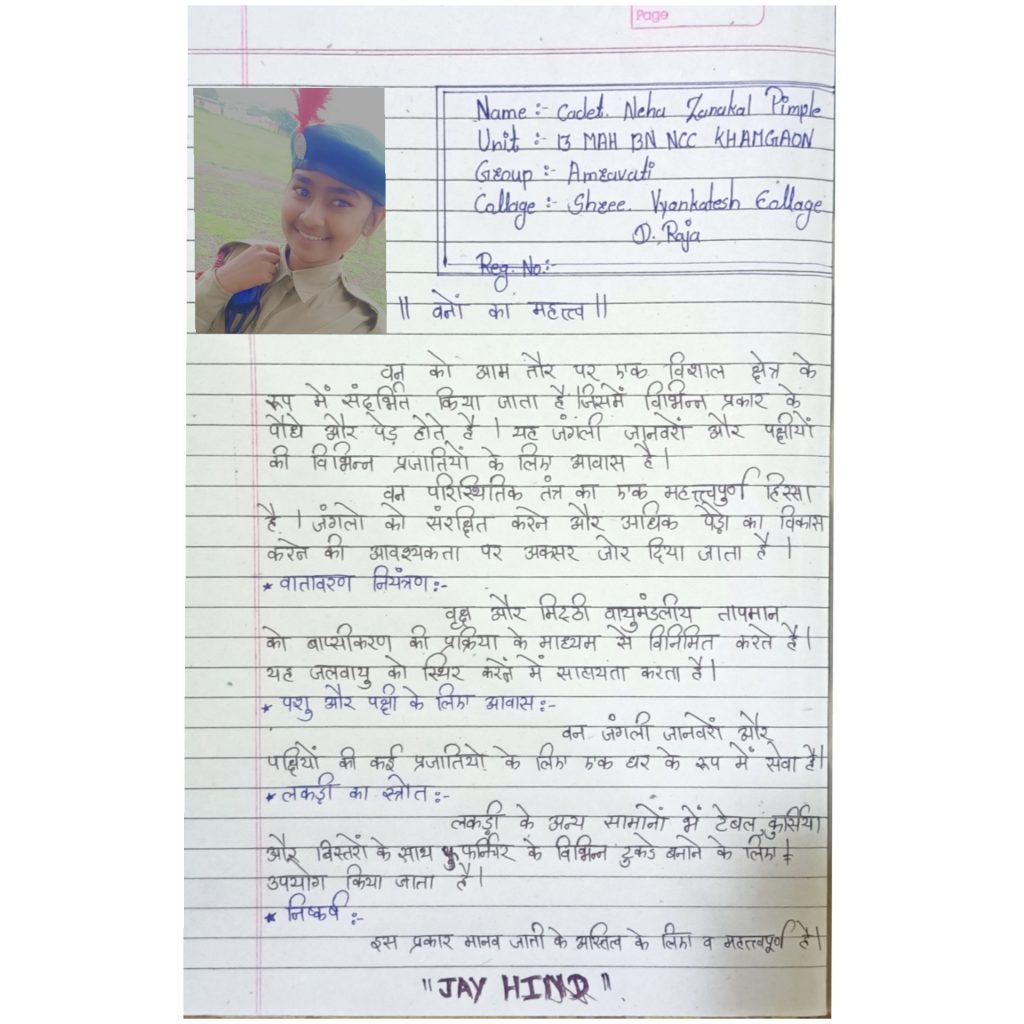 Page
Name :- Cadet. Neha Zanakal Pimple
Unit :- 13 MAH BN NCC KHAMGAON
Group :- Amravati
Collage :- Shree. Vyankatesh Collage
D. Raja
Reg. No:-
|| वनों का महत्त्व ||
वन को आम तौर पर एक विशाल क्षेत्र के
रूप में संदर्भित किया जाता है।जिसमें विभिन्न प्रकार के
पौधे और पेड़ होते है । यह जंगली जानवरों और पक्षीयों
की विभिन्न प्रजातियों के लिए आवास है।
वन परिस्थितिक तंत्र का एक महत्त्वपुर्ण हिस्सा
है । जंगलो को संरक्षित करने और अधिक पेड़ो का विकास
करने की आवश्यकता पर अक्सर जोर दिया जाता है ।
* वातावरण नियंत्रण:-
वृक्ष और मिट्ठी वायुमंडलीय तापमान
को बाप्सीकरण की प्रक्रिया के माध्यम से विनिमित करते है।
यह जलवायु को स्थिर करने में साहायता करता है।
* पशु और पक्षी के लिए आवास:-
वन जंगली जानवरों और
पक्षियों की कई प्रजातियो के लिए एक घर के रूप में सेवा है।
* लकड़ी का स्त्रोत:-
लकड़ी के अन्य सामानों में टेबल, कुर्सिया
और बिस्तरों के साथ फर्निचर के विभिन्न टुकडे बनाने के लिए
उपयोग किया जाता है।
* निष्कर्ष :-
इस प्रकार मानव जाती के अस्तित्व के लिए व महत्त्वपूर्ण है।
"JAY HIND".